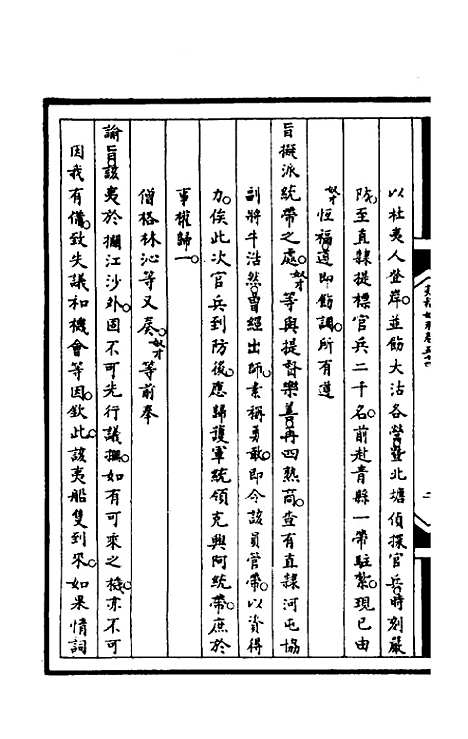 以杜夷人登岸並飭大沽各營暨北塘偵探官兵時刻嚴
防至直隸提標官兵二千名前赴青縣一帶駐紮現已由
奴才恆福遵即飭調所有遵
旨擬派統帶之處奴才等與提督樂善再四熟商查有直隸河屯協
副將牛浩然曾經出師素稱勇敢即令該員管帶以資得
力俟此次官兵到防後應歸護軍統領克興阿統帶庶於
事權歸一
僧格林沁等又奏奴才等前奉
諭旨該夷於攔江沙外固不可先行議撫如有可乘之機亦不可
因我有備致失議和機會等因欽此該夷船隻到來如果情詞